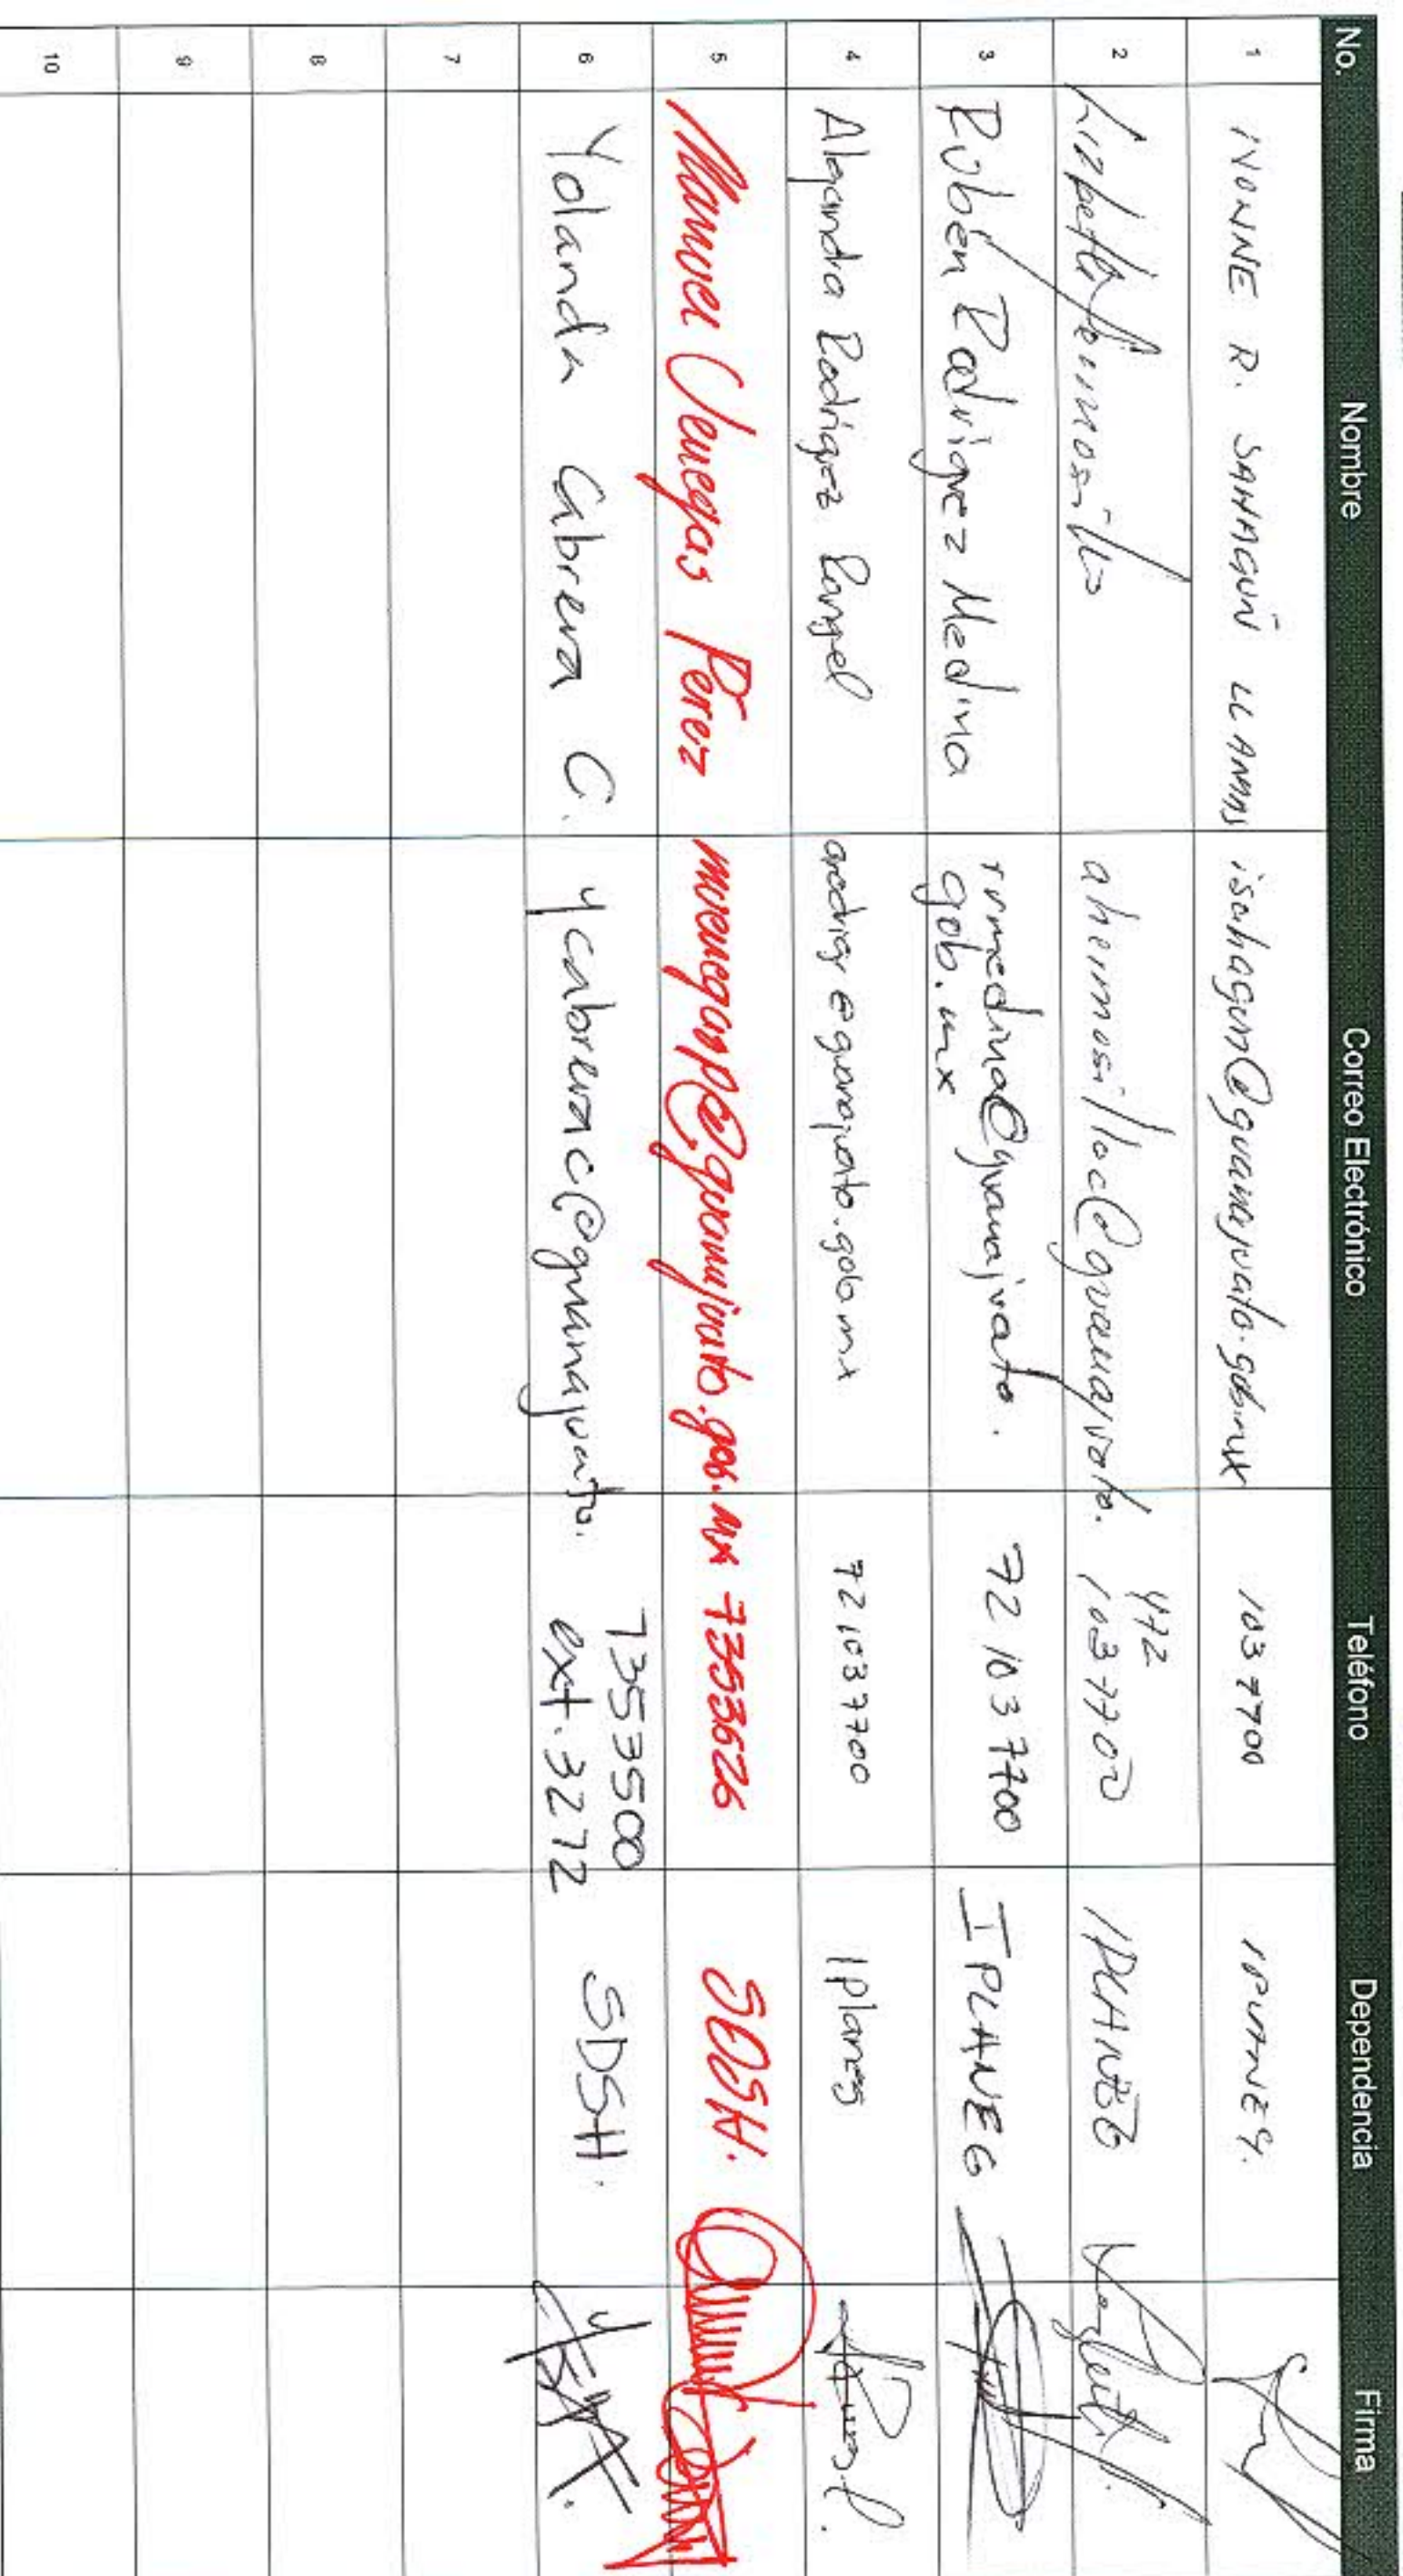 No. Nombre Correo Electrónico Teléfono Dependencia Firma
1 IVONNE R. SAHAGÚN LLAMAS isahagun@guanajuato.gob.mx 1037700 IPLANEG.
2 Lizbeth Hermosillo ahermosilloc@guanajuato. 472 1037700 IPLANEG
3 Rubén Rodriguez Medina rrmedina@guanajuato. 72 103 7700 IPLANEG
gob.mx
4 Alejandra Rodríguez Rangel arodrigr@guanajuato.gob.mx 72 1037700 Iplaneg
5 Manuel Venegas Pérez mvenegasp@guanajuato.gob.mx 7353626 SDSH.
6 Yolanda Cabrera C. ycabrerac@guanajuato. 7353500 SDSH.
ext. 3272
7
8
9
10